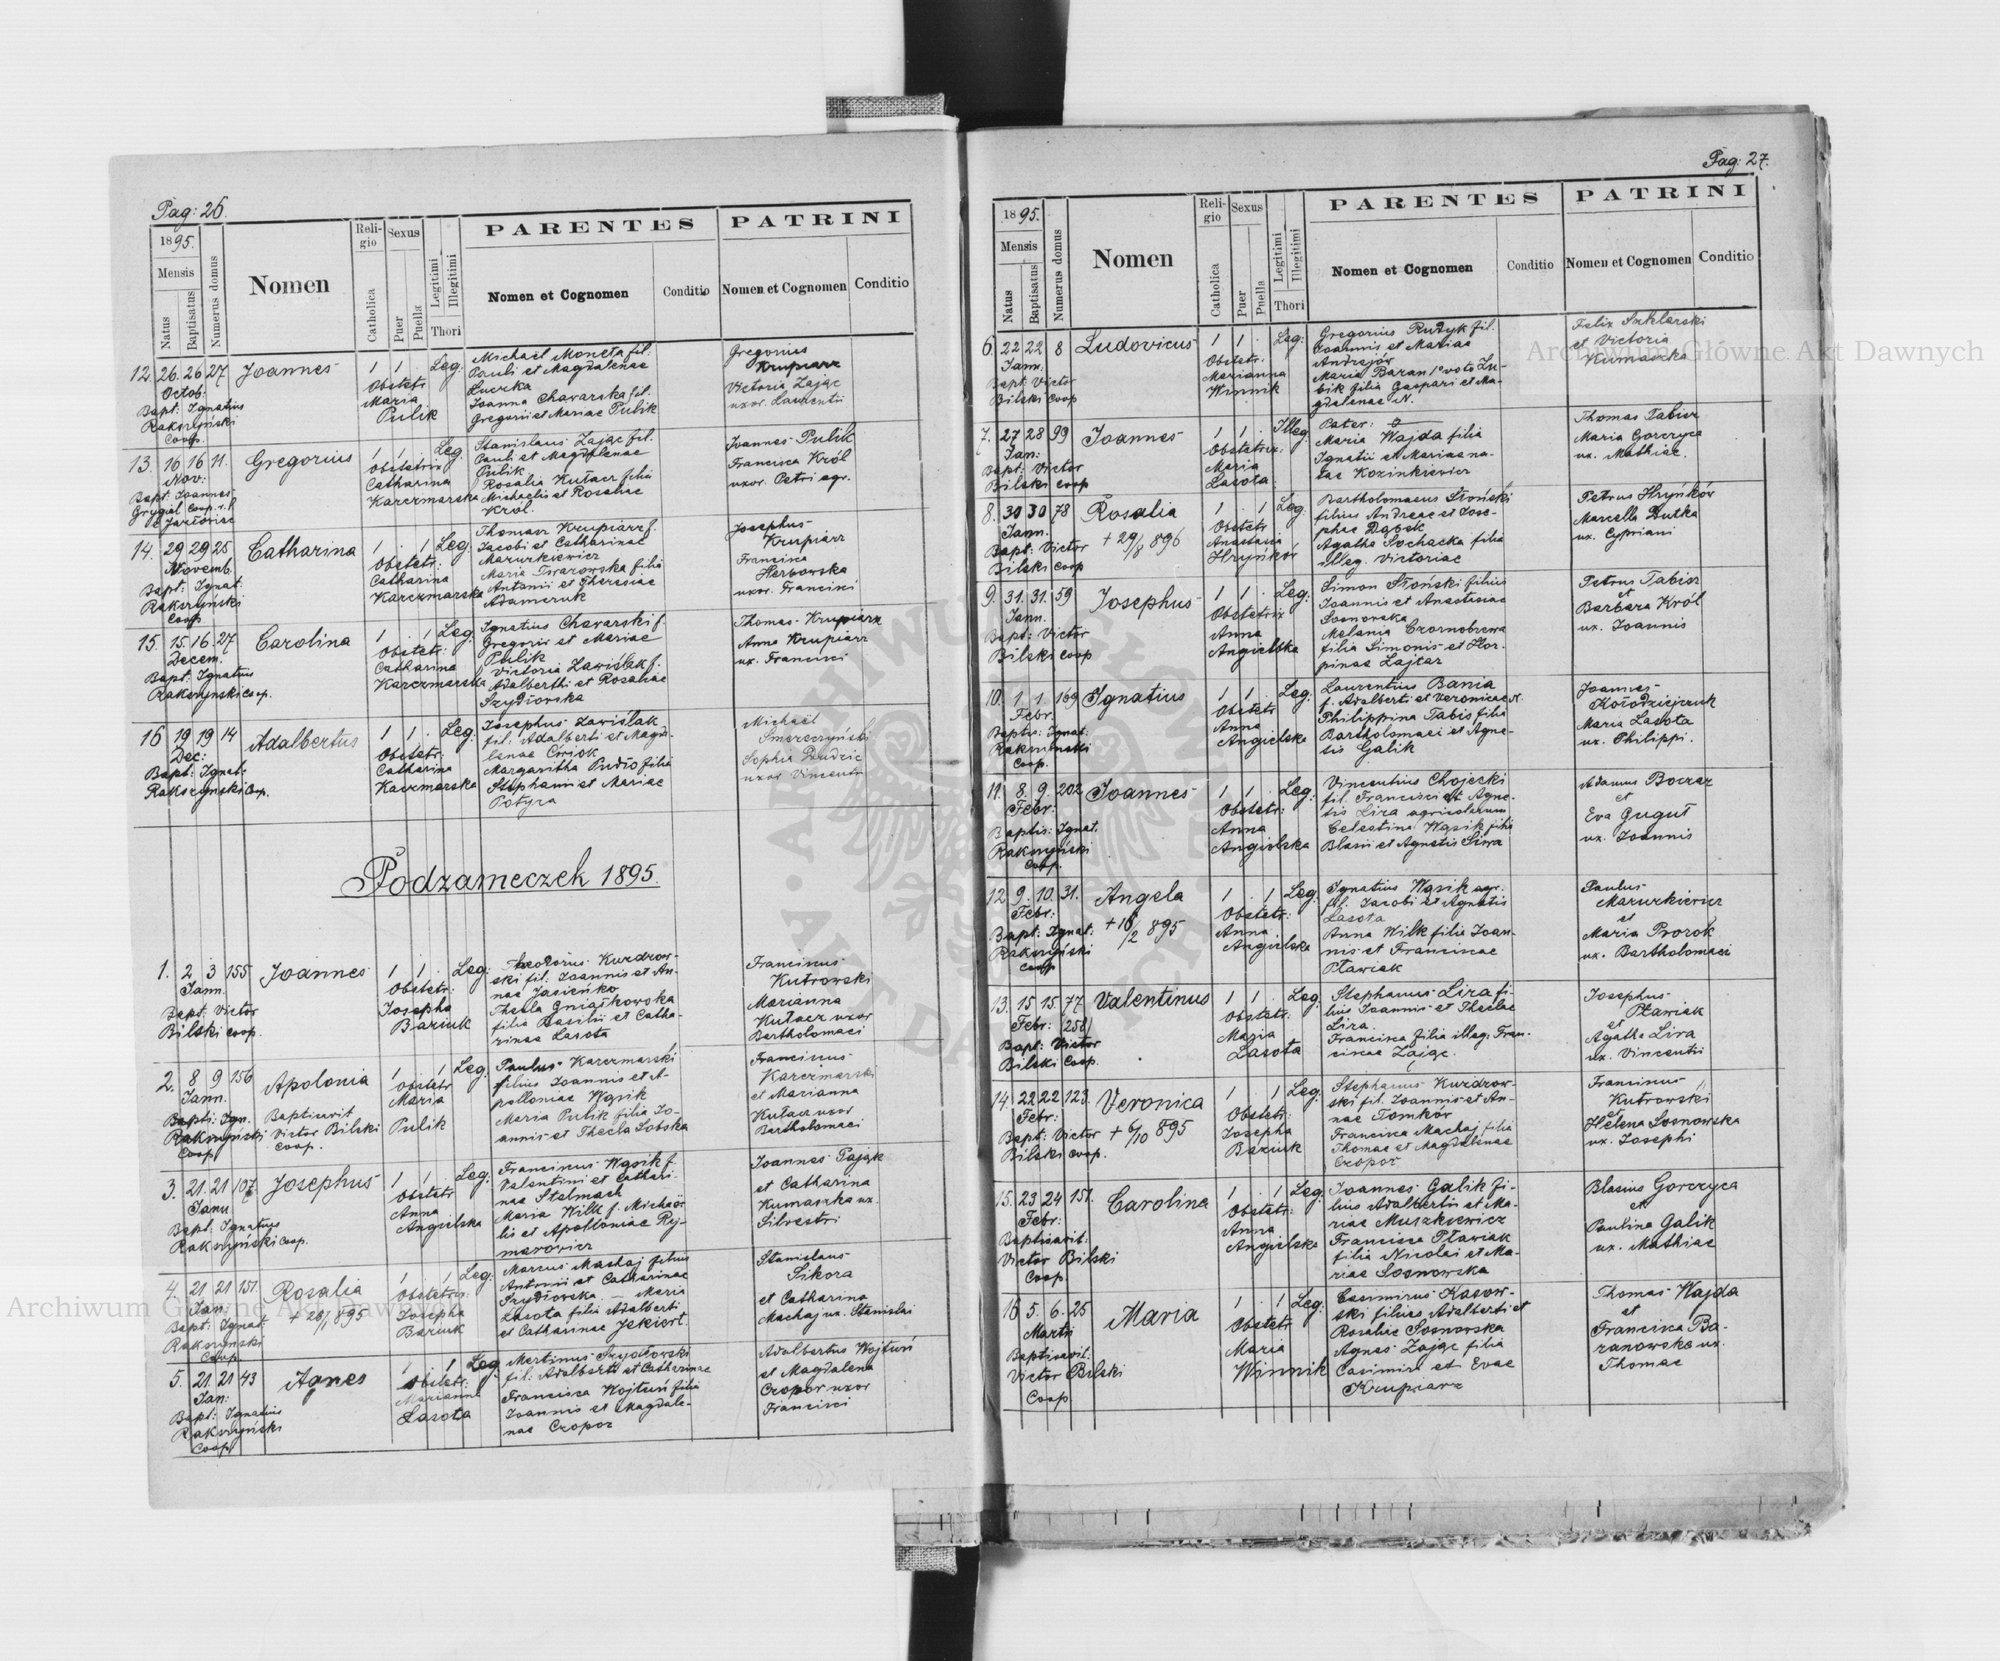 Pag: 26.
1895.
Mensis
Natus
Baptisatus
Numerus domus
Nomen
Reli-
gio
Catholica
Sexus
Puer
Puella
Legitimi
Illegitimi
Thori
PARENTES
Nomen et Cognomen
Conditio
PATRINI
Nomen et Cognomen
Conditio
12. 26. 26 27 Joannes 1 1 . Leg.
Octob:
Bapt: Ignatius
Rakszyński
Coop.
Obstetr
Maria
Pulik
Michael Moneta fil:
Pauli et Magdalenae
Luczka
Joanna Chavarska fil.
Gregorii et Mariae Pulik
Gregorius
Krupiarz
Victoria Zając
uxor. Laurentii
13. 16 16 11. Gregorius 1 . Leg
Nov:
Bapt: Joannes
Grygiel Coop. r. l.
Obstetrix
Catharina
Karczmarska
Stanislaus Zając fil.
Pauli et Magdalenae
Pulik
Rosalia Kutacz filia
Michaelis et Rosaliae
Król.
Joannes Pulik
Francisca Król
uxor. Petri agr.
14. 29 29 25 Catharina 1 . 1 Leg.
Novemb.
Bapt: Ignat:
Rakszyński
Coop
Obstetr:
Catharina
Karczmarska
Thomasz Krupiarz f.
Jacobi et Catharinae
Mazurkiewicz
Maria Twarowska filia
Antonii et Theresiae
Adamczuk
Josephus
Krupiarz
Francisca
Herbowska
uxor. Francisci
15. 15. 16. 27 Carolina 1 . 1 Leg:
Decem.
Bapt: Ignatius
Rakszynski Coop.
Obstetr:
Catharina
Karczmarska
Ignatius Chavarski f.
Gregorii et Mariae
Pulik
Victoria Zawiślak f.
Adalberthi et Rosaliae
Szydłowska
Thomas Krupiarz
Anna Krupiarz
ux. Francisci
16 19 19 14 Adalbertus 1 1 . Leg:
Dec:
Bapt: Ignat:
Rakszynski Cop.
Obstetr:
Catharina
Kaczmarska
Josephus Zawiślak
fil: Adalberti et Magda-
lenae Cwiok
Margaritha Pudło filia
Stephani et Mariae
Potyra
Michael
Smereczyński
Sophia Dudzic
uxor Vincentii
Podzameczek 1895.
1. 2 3 155 Joannes 1 1 . Leg:
Jann.
Bapt. Victor
Bilski coop.
Obstetr:
Josepha
Baziuk
Theodorus Kuzdrow-
ski fil. Joannis et An-
nae Jasieńko
Thecla Gniazkowska
filia Basilii et Catha-
rinae Lasota
Franciscus
Kutrowski
Marianna
Kutacz uxor
Bartholomaei
2. 8 9 156 Apolonia 1 . 1 Leg:
Jann.
Bapti: Ign.
Rakszyński
Coop
Baptisavit
Victor Bilski
Coop.
Obstetr
Maria
Pulik
Paulus Karczmarski
filius Joannis et A-
polloniae Wąsik
Maria Pulik filia Jo-
annis et Thecla Sobska
Franciscus
Karczmarski
et Marianna
Kutacz uxor
Bartholomaei
3. 21. 21 107. Josephus 1 1 . Leg.
Janu
Bapt. Ignatius
Rakszyński Coop.
Obstetr
Anna
Angielska
Franciscus Wąsik f.
Valentini et Cathari-
nae Stelmach
Maria Wilk f. Michae-
lis et Apolloniae Raj-
marowicz
Joannes Pająk
et Catharina
Kumaszka ux.
Silvestri
4. 21 21 151. Rosalia 1 . 1 Leg:
Jan:
Bapt: Ignat
Rakszynski
Coop.
+ 28/1 895
Obstetrix
Josepha
Baziuk
Marcus Machaj filius
Antonii et Catharinae
Szydłowska. — Maria
Lasota filia Adalberti
et Catharinae Jekiert.
Stanislaus
Sikora
et Catharina
Machaj ux. Stanislai
5. 21. 21 43 Agnes 1 . 1 Leg
Jan:
Bapt: Ignatius
Rakszyński
Coop
Obstetr:
Marianna
Lasota
Martinus Szydłowski
fil: Adalberti et Catharinae
Francisca Wojtuń filia
Joannis et Magdale-
nae Czopor
Adalbertus Wojtuń
et Magdalena
Czopor uxor
Francisci
Pag: 27.
1895.
Mensis
Natus
Baptisatus
Numerus domus
Nomen
Reli-
gio
Catholica
Sexus
Puer
Puella
Legitimi
Illegitimi
Thori
PARENTES
Nomen et Cognomen
Conditio
PATRINI
Nomen et Cognomen
Conditio
6. 22 22 8 Ludovicus 1 1 . Leg:
Jann:
Bapt: Victor
Bilski Coop
Obstetr.
Marianna
Winnik
Gregorius Rudyk fil.
Joannis et Mariae
Andrejów
Maria Baran 1º voto Zu-
bik filia Gaspari et Ma-
gdalenae N.
Felix Szklarski
et Victoria
Kumaszka
7. 27 28 99 Joannes 1 1 . Illeg:
Jan:
Bapt: Victor
Bilski coop
Obstetrix:
Maria
Lasota
Pater: 0
Maria Wajda filia
Ignatii et Mariae na-
tae Kozinkiewicz
Thomas Tabisz
Maria Gorczyca
ux. Mathiae.
8. 30 30 78 Rosalia 1 . 1 Leg:
Jann.
Bapt: Victor
Bilski Coop
+ 29/8 896
Obstetr
Anastasia
Hryńków
Bartholomaeus Słoński
filius Andreae et Jose-
phae Dąbek
Agatha Sochacka filia
illeg. Victoriae
Petrus Hryńków
Marcella Dutka
ux. Cypriani
9. 31. 31. 59 Josephus 1 1 . Leg:
Jann.
Bapt: Victor
Bilski coop
Obstetrix
Anna
Angielska
Simon Słoński filius
Joannis et Anastasiae
Sosnowska
Melania Czornobrewa
filia Simonis et Hor-
pinae Lajtar
Petrus Tabisz
et
Barbara Król
ux. Joannis
10. 1. 1. 169 Ignatius 1 1 . Leg.
Febr.
Baptis: Ignat:
Rakszyński
Coop.
Obstetr
Anna
Angielska
Laurentius Bania
f. Adalberti et Veronicae N.
Philippina Tabis filia
Bartholomaei et Agne-
tis Galik
Joannes
Kołodziejczuk
Maria Lasota
ux. Philippi.
11. 8. 9. 202 Joannes 1 1 . Leg:
Febr:
Baptis: Ignat.
Rakszyński
Coop.
Obstetr:
Anna
Angielska
Vincentius Chojecki
fil. Francisci et Agne-
tis Lira agricolarum
Celestina Wąsik filia
Blasii et Agnetis Lira
Adamus Boczar
et
Eva Gugut
ux. Joannis
12 9. 10. 31. Angela 1 . 1 Leg.
Febr:
Bapt: Ignat:
Rakszyński
Coop
+ 16/2 895
Obstetr:
Anna
Angielska
Ignatius Wąsik agr.
fil. Jacobi et Agnetis
Lasota
Anna Wilk filia Joan-
nis et Franciscae
Pławiak
Paulus
Mazurkiewicz
et
Maria Prorok
ux. Bartholomaei
13. 15 15 77 Valentinus 1 1 . Leg.
Febr: (258)
Bapt: Victor
Bilski Coop.
Obstetr:
Maria
Lasota
Stephanus Lira fi-
lius Joannis et Theclae
Lira.
Francisca filia illeg. Fran-
ciscae Zając.
Josephus
Pławiak
et
Agatha Lira
ux. Vincentii
14. 22 22 123. Veronica 1 . 1 Leg:
Febr:
Bapt: Victor
Bilski coop.
+ 6/10 895
Obstetr:
Josepha
Baziuk
Stephanus Kuzdrow-
ski fil. Joannis et An-
nae Tomków
Francisca Machaj filia
Thomae et Magdalenae
Czopor
Franciscus
Kutrowski
et
Helena Sosnowska
ux. Josephi
15. 23 24 151. Carolina 1 . 1 Leg:
Febr:
Baptisavit:
Victor Bilski
Coop
Obstetr:
Anna
Angielska
Joannes Galik fi-
lius Adalberti et Ma-
riae Muszkiewicz
Francisca Pławiak
filia Nicolai et Ma-
riae Sosnowska
Blasius Gorczyca
et
Paulina Galik
ux. Mathiae
16 5. 6. 25 Maria 1 . 1 Leg:
Martii
Baptisavit:
Victor Bilski
Coop
Obstetr
Maria
Winnik
Casimirus Kasow-
ski filius Adalberti et
Rosaliae Sosnowska
Agnes Zając filia
Casimiri et Evae
Krupiarz
Thomas Wajda
et
Francisca Ba-
ranowska ux.
Thomae
Archiwum Główne Akt Dawnych
Archiwum Główne Akt Dawnych
ARCHIWUM GŁÓWNE AKT DAWNYCH